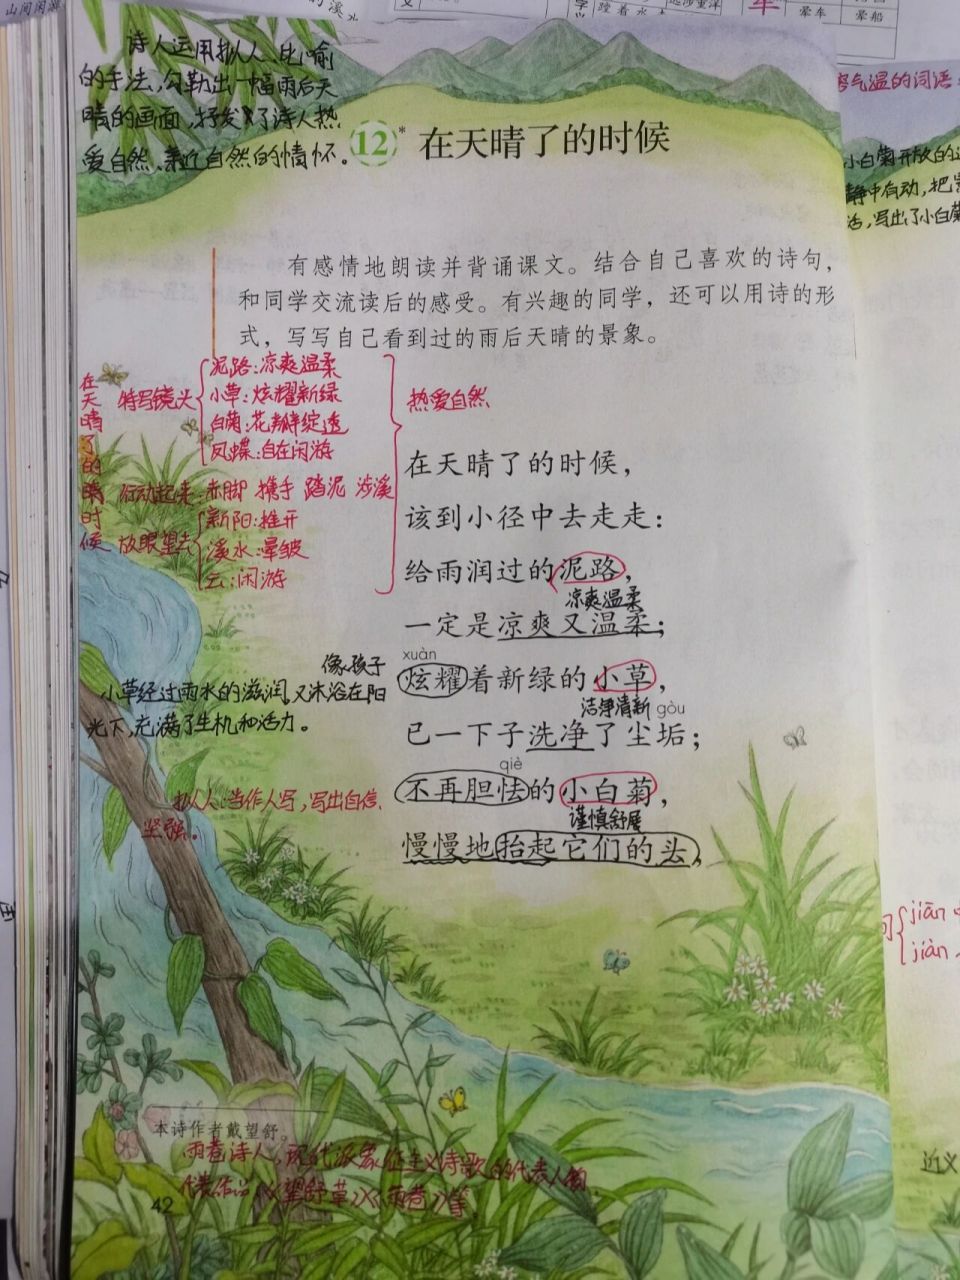 山间闲游
晕车
晕船
诗人运用拟人、比喻
的手法,勾勒出一幅雨后天
晴的画面,抒发了诗人热
爱自然、亲近自然的情怀。
12* 在天晴了的时候
有感情地朗读并背诵课文。结合自己喜欢的诗句,
和同学交流读后的感受。有兴趣的同学,还可以用诗的形
式,写写自己看到过的雨后天晴的景象。
在天晴了的时候
特写镜头
泥路:凉爽温柔
小草:炫耀新绿
白菊:花瓣绽透
凤蝶:自在闲游
行动起来:赤脚 携手 踏泥 涉溪
放眼望去
新阳:推开
溪水:晕皱
云:闲游
热爱自然
在天晴了的时候,
该到小径中去走走:
给雨润过的泥路,
凉爽温柔
一定是凉爽又温柔;
xuàn
炫耀着新绿的小草,
洁净清新
gòu
已一下子洗净了尘垢;
qiè
不再胆怯的小白菊,
谨慎舒展
慢慢地抬起它们的头,
像孩子
小草经过雨水的滋润,又沐浴在阳
光下,充满了生机和活力。
拟人:当作人写,写出自信、
坚强。
本诗作者戴望舒。
雨巷诗人,现代派象征主义诗歌的代表人物
代表作品《望舒草》《雨巷》等
42
气温的词语
小白菊开放的
静中有动,把
活,写出了小白菊
jiān
jiàn
近义